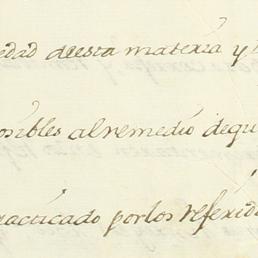 edad de esta materia y
osibles al remedio de qu
racticado por los referid